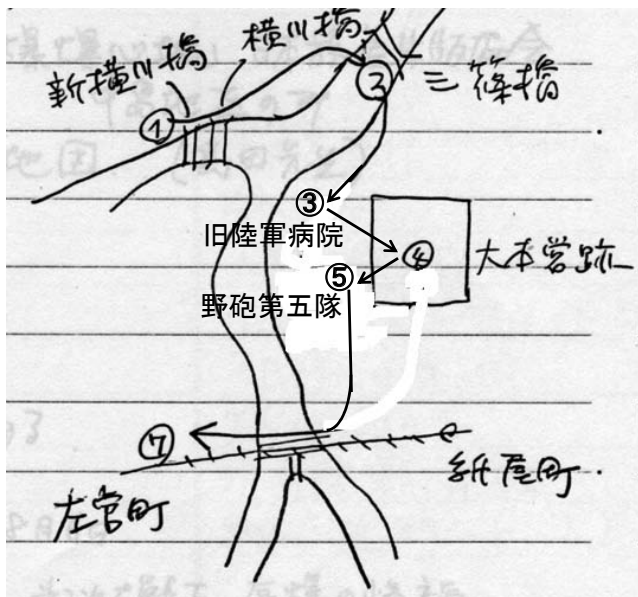 横川橋
新横川橋
三篠橋
①
②
③
旧陸軍病院
④
大本営跡
⑤
野砲第五隊
⑦
紙屋町
左官町